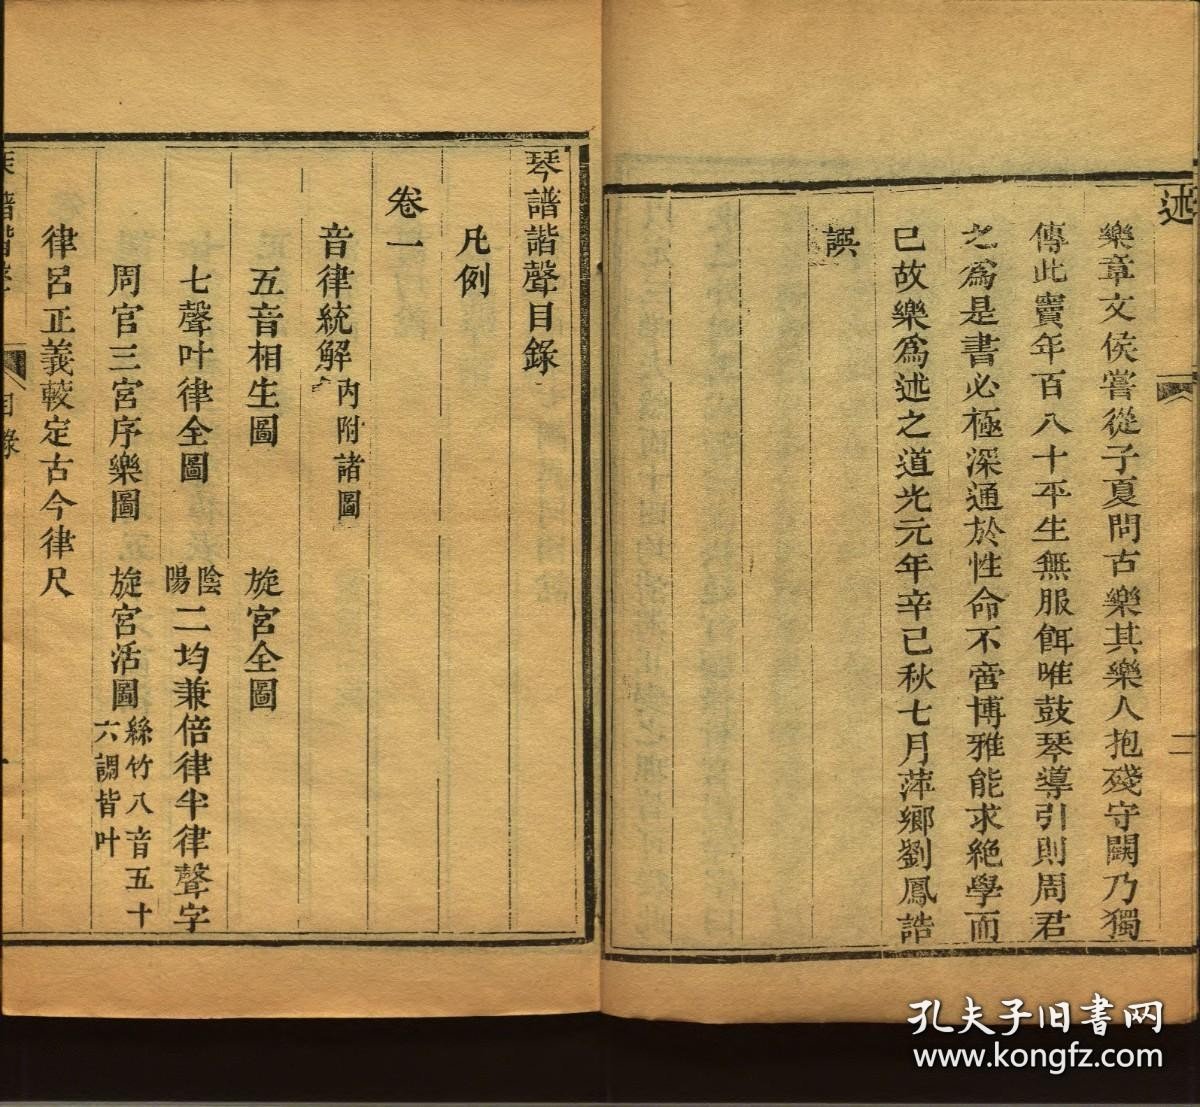 述
二
樂章文侯嘗從子夏問古樂其樂人抱殘守闕乃獨
傳此竇年百八十平生無服餌唯鼓琴導引則周君
之為是書必極深通於性命不啻博雅能求絶學而
已故樂為述之道光元年辛巳秋七月萍鄉劉鳳誥
誤
琴譜諧聲目錄
凡例
卷一
音律統解內附諸圖
五音相生圖 旋宮全圖
七聲叶律全圖 陰陽二均兼倍律半律聲字
周官三宮序樂圖 旋宮活圖絲竹八音五十六調皆叶
律呂正義較定古今律尺
目錄
一
孔夫子旧书网
www.kongfz.com